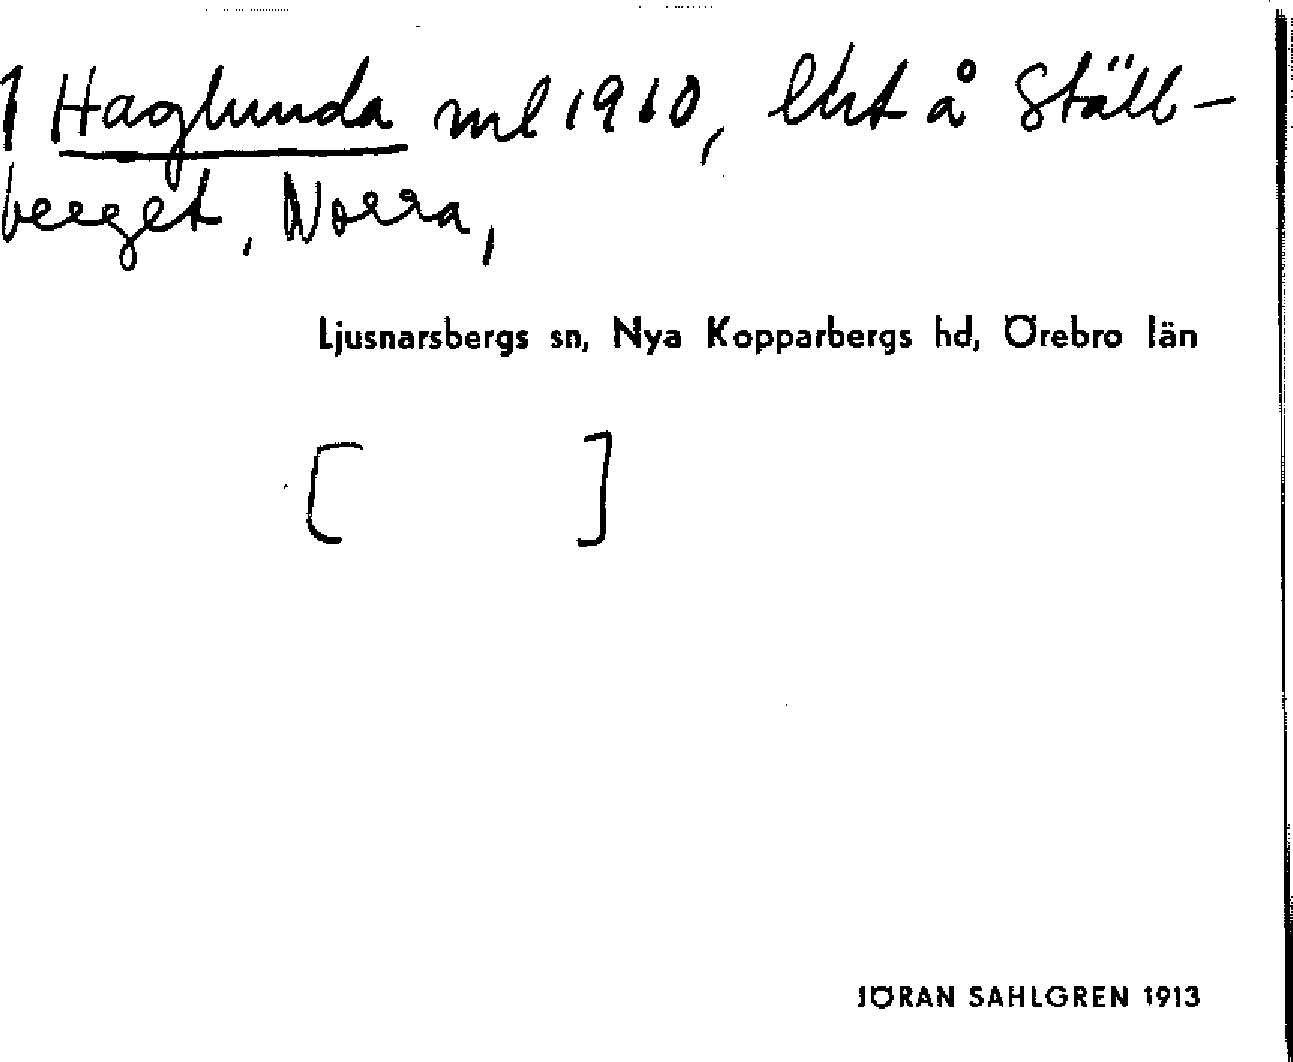 1 Haglunda ml 1910, lht å Ställ-
berget, Norra,
Ljusnarsbergs sn, Nya Kopparbergs hd, Örebro län
[ ]
JÖRAN SAHLGREN 1913